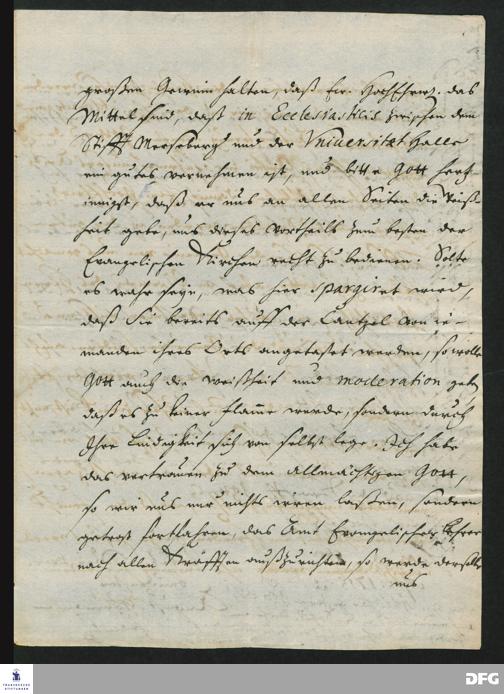 großen Gewinn halten, daß Ew. HochEhrw. das
Mittel sind, daß in Ecclesiasticis zwischen dem
Stifft Merseburg und der Universitæt Halle
ein gutes vernehmen ist, und bitte Gott hertz-
innigst, daß er uns an allen Seiten die Weiß-
heit gebe, uns dieses Vortheils zum besten der
Evangelischen Kirchen recht zu bedienen. Solte
es wahr seyn, was hier spargiret wird,
daß Sie bereits auff der Cantzel von ie-
manden ihres Orts angetastet werden, so wolle
Gott auch die weißheit und moderation geben
daß es zu keiner flamme werde, sondern durch
Ihre Lindigkeit sich von selbst lege. Ich habe
das vertrauen zu dem allmächtigen Gott,
so wir uns nur nichts irren laßen, sondern
getrost fortfahren, das Amt Evangelischer Lehrer
nach allen Kräfften außzurichten, so werde derselbe
uns
FRANCKESCHE
STIFTUNGEN
DFG